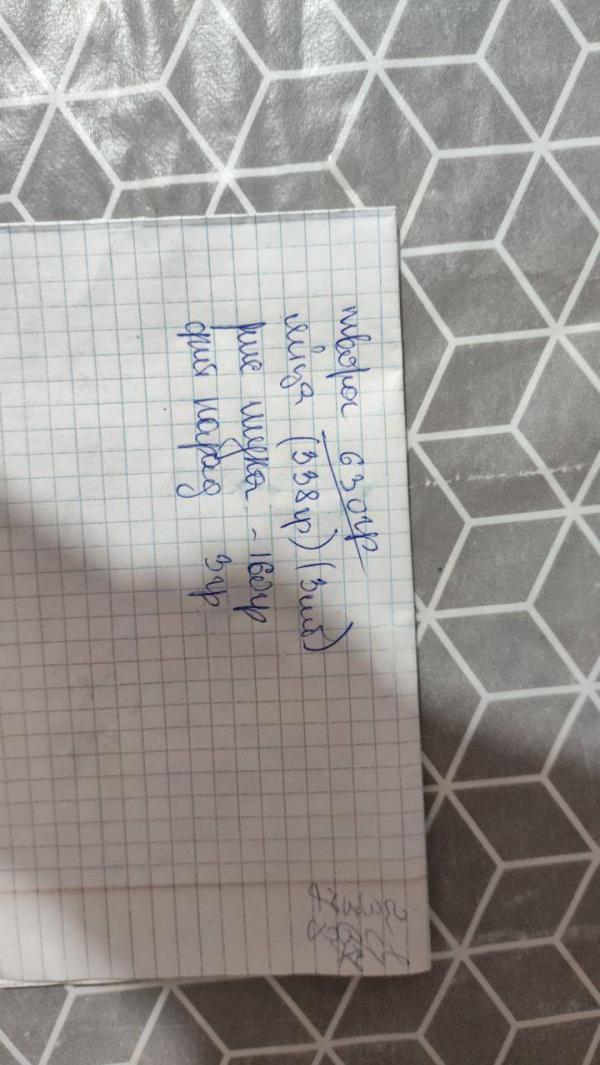 творог 630гр
яйца (338гр) (3шт)
рис мука - 160гр
фит парад 3гр